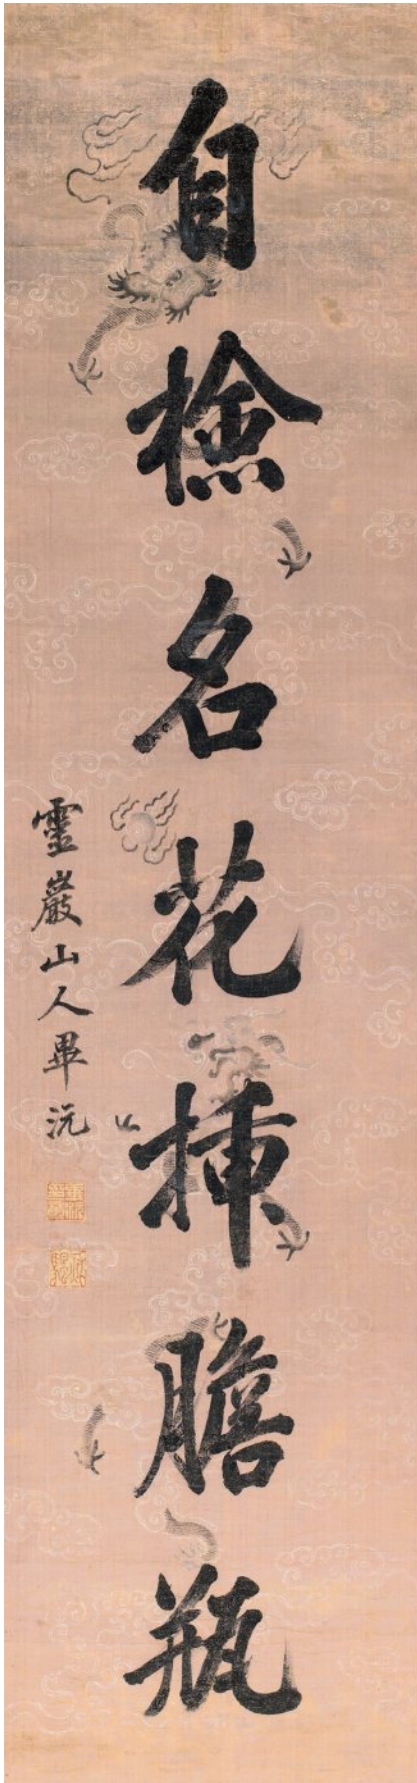 自檢名花插膽瓶
靈巖山人畢沅